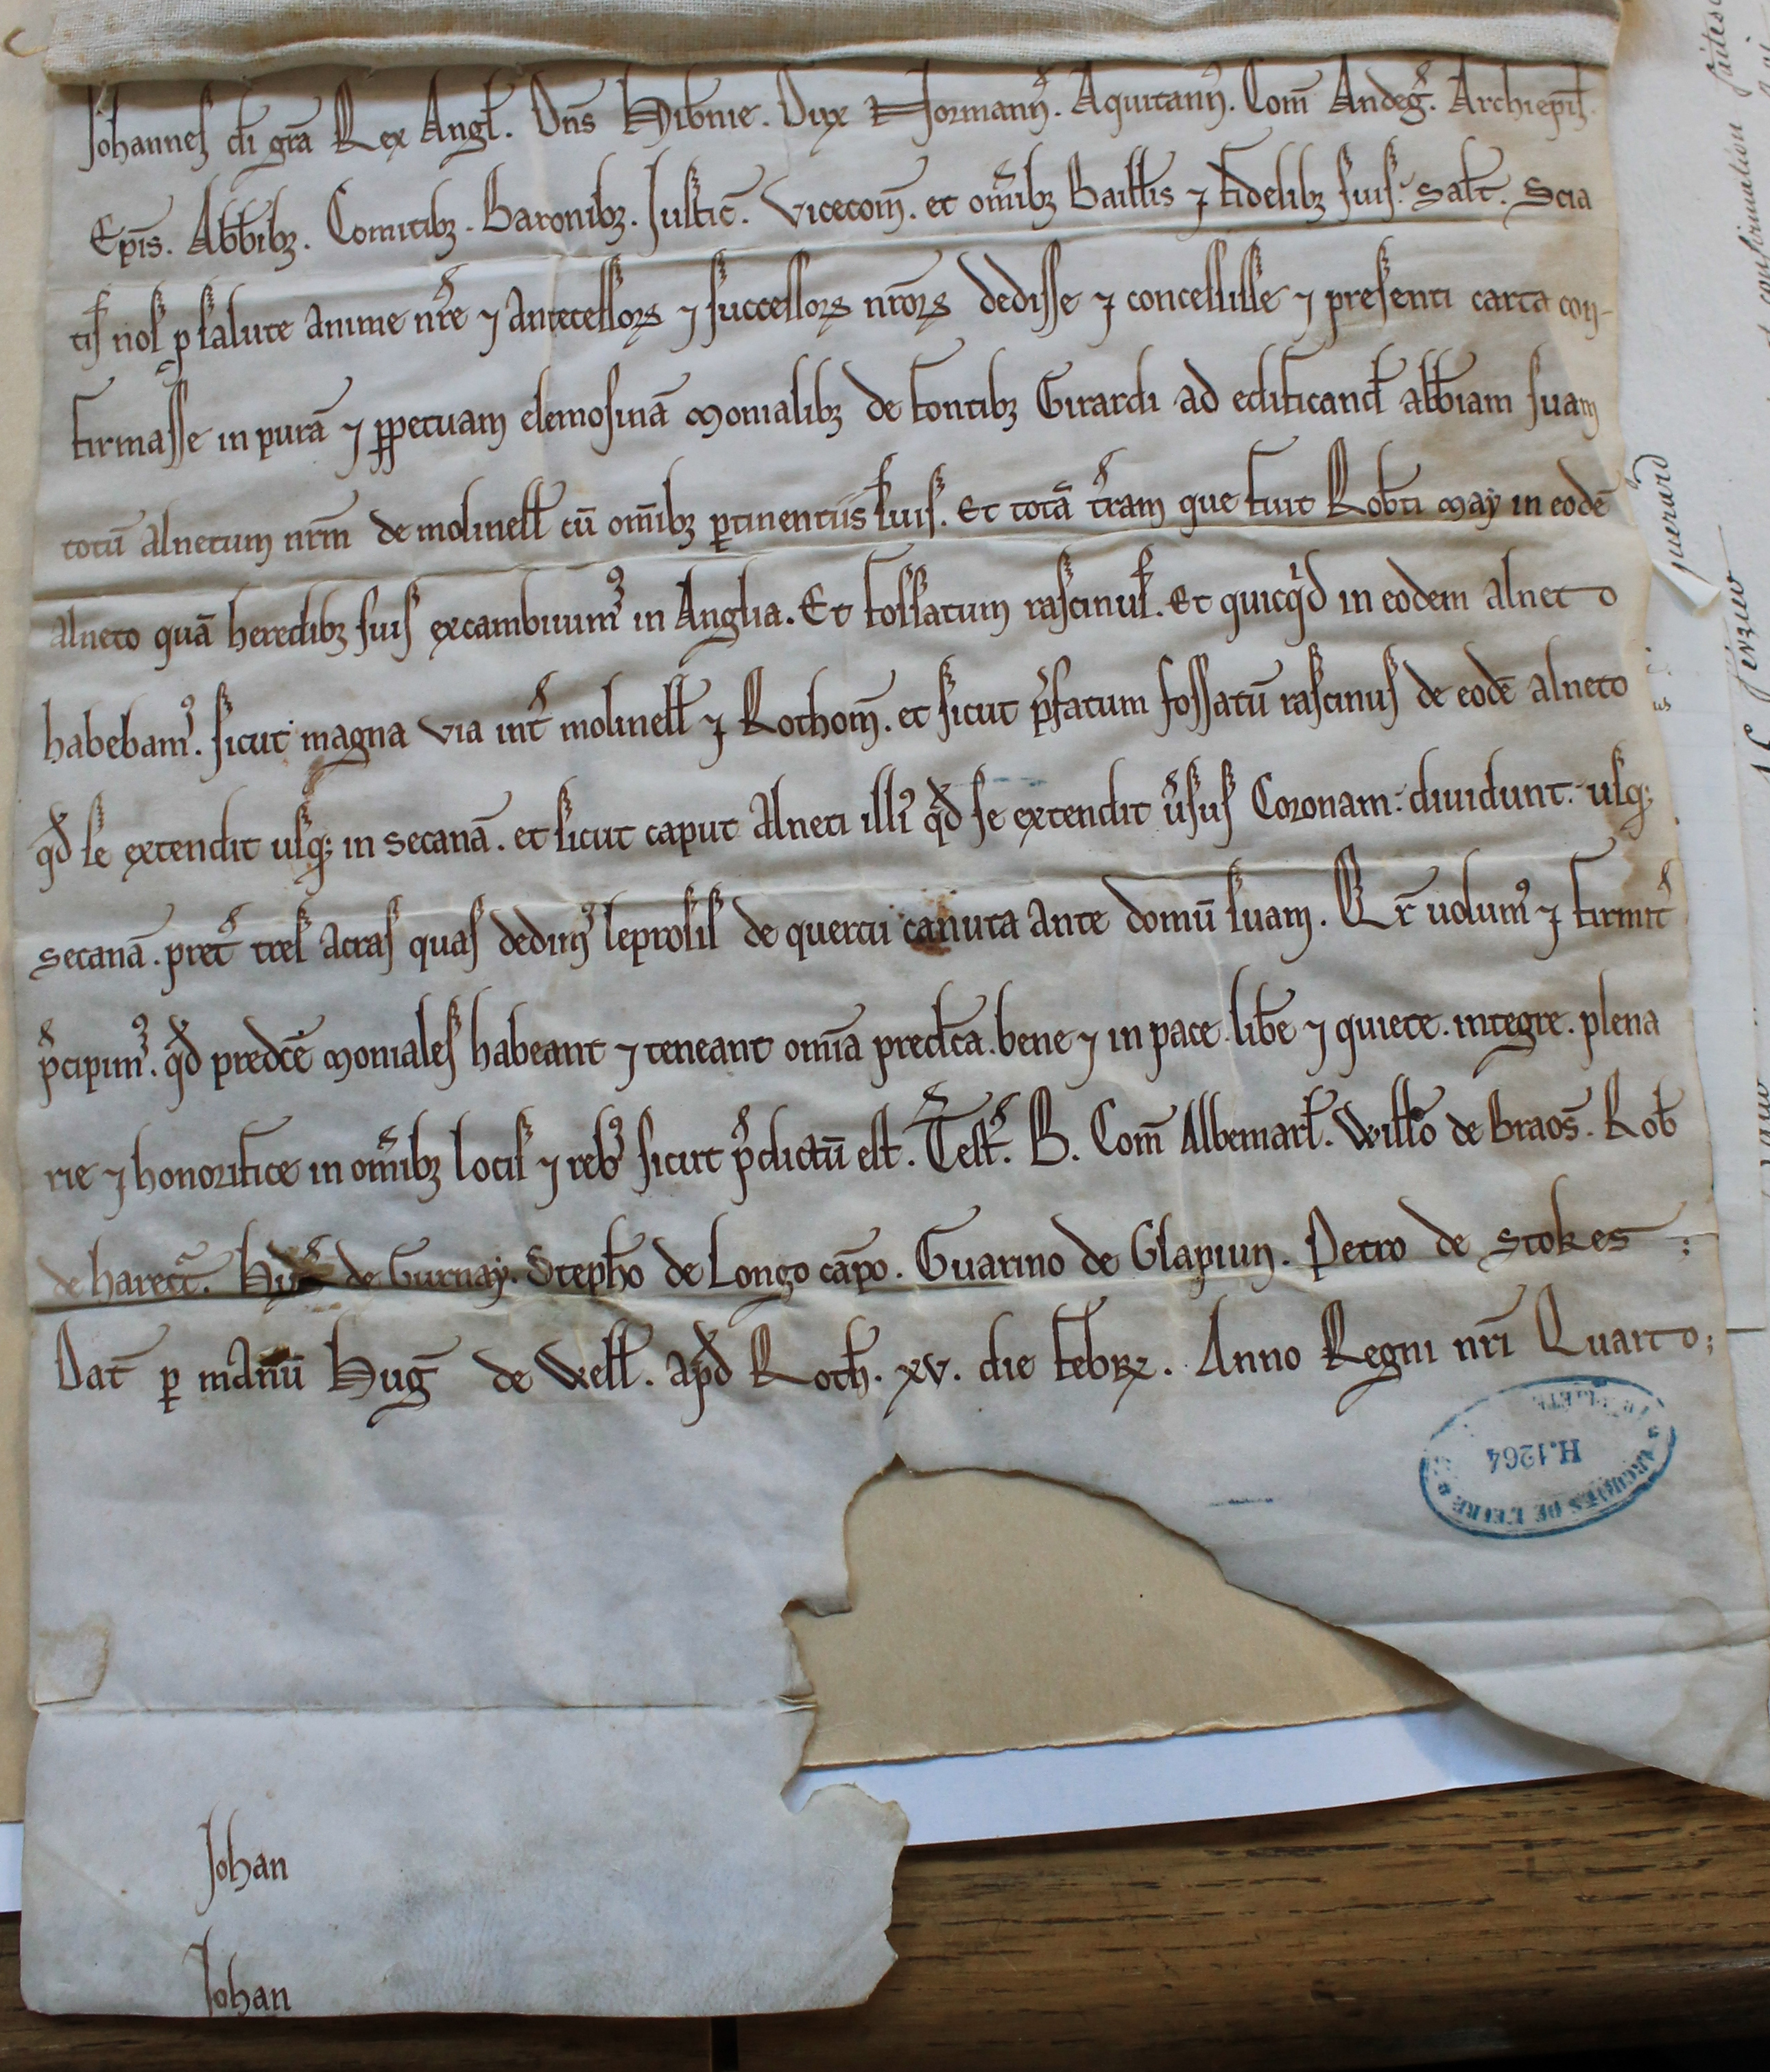 Johannes di gra Rex Angl. Dns Hibnie. Dux Normann. Aquitann. Com Andeg. Archiepis.
Epis. Abbibz. Comitibz. Baronibz. Justic. Vicecom. et omibz Baillis ⁊ fidelibz suis. Salt. Scia
tis nos p salute anime nre ⁊ antecessorꝝ ⁊ successorꝝ nrorꝝ dedisse ⁊ concessisse ⁊ presenti carta con-
firmasse in purā ⁊ ppetuam elemosinā monialibz de fontibz Girardi ad edificand abbiam suam
totū alnetum nrm de molinell cū omibz ptinentiis suis. Et totā tram que fuit Robti may in eodē
alneto quā heredibz suis excambiuimꝰ in Anglia. Et fossatum rascinus. Et quicqd in eodem alneto
habebamꝰ. sicut magna via int molinell ⁊ Rothom. et sicut pfatum fossatū rascinus de eodē alneto
qd se extendit usqꝫ in secanā. et sicut caput alneti illiꝰ qd se extendit usus Coronam diuidunt usqꝫ
secanā. pret tres acras quas dedimꝰ leprosis de quercu canuta ante domū suam. Qr uolumꝰ ⁊ firmit
pcipimꝰ. qd predcē moniales habeant ⁊ teneant omia predcta. bene ⁊ in pace. libe ⁊ quiete. integre. plena
rie ⁊ honorifice in omibz locis ⁊ rebꝰ sicut pdictū est. Test. B. Com Albemarl. Willo de Braos. Rob
de harect. Hug de Gurnay. Stepho de Longo cāpo. Guarino de Glapiun. Petro de Stokes ;
Dat p manū Hug de Well. apd Roth. xv. die febrꝝ. Anno Regni nri Quarto ;
ARCHIVES DE L'EURE
H.1264
Johan
Johan